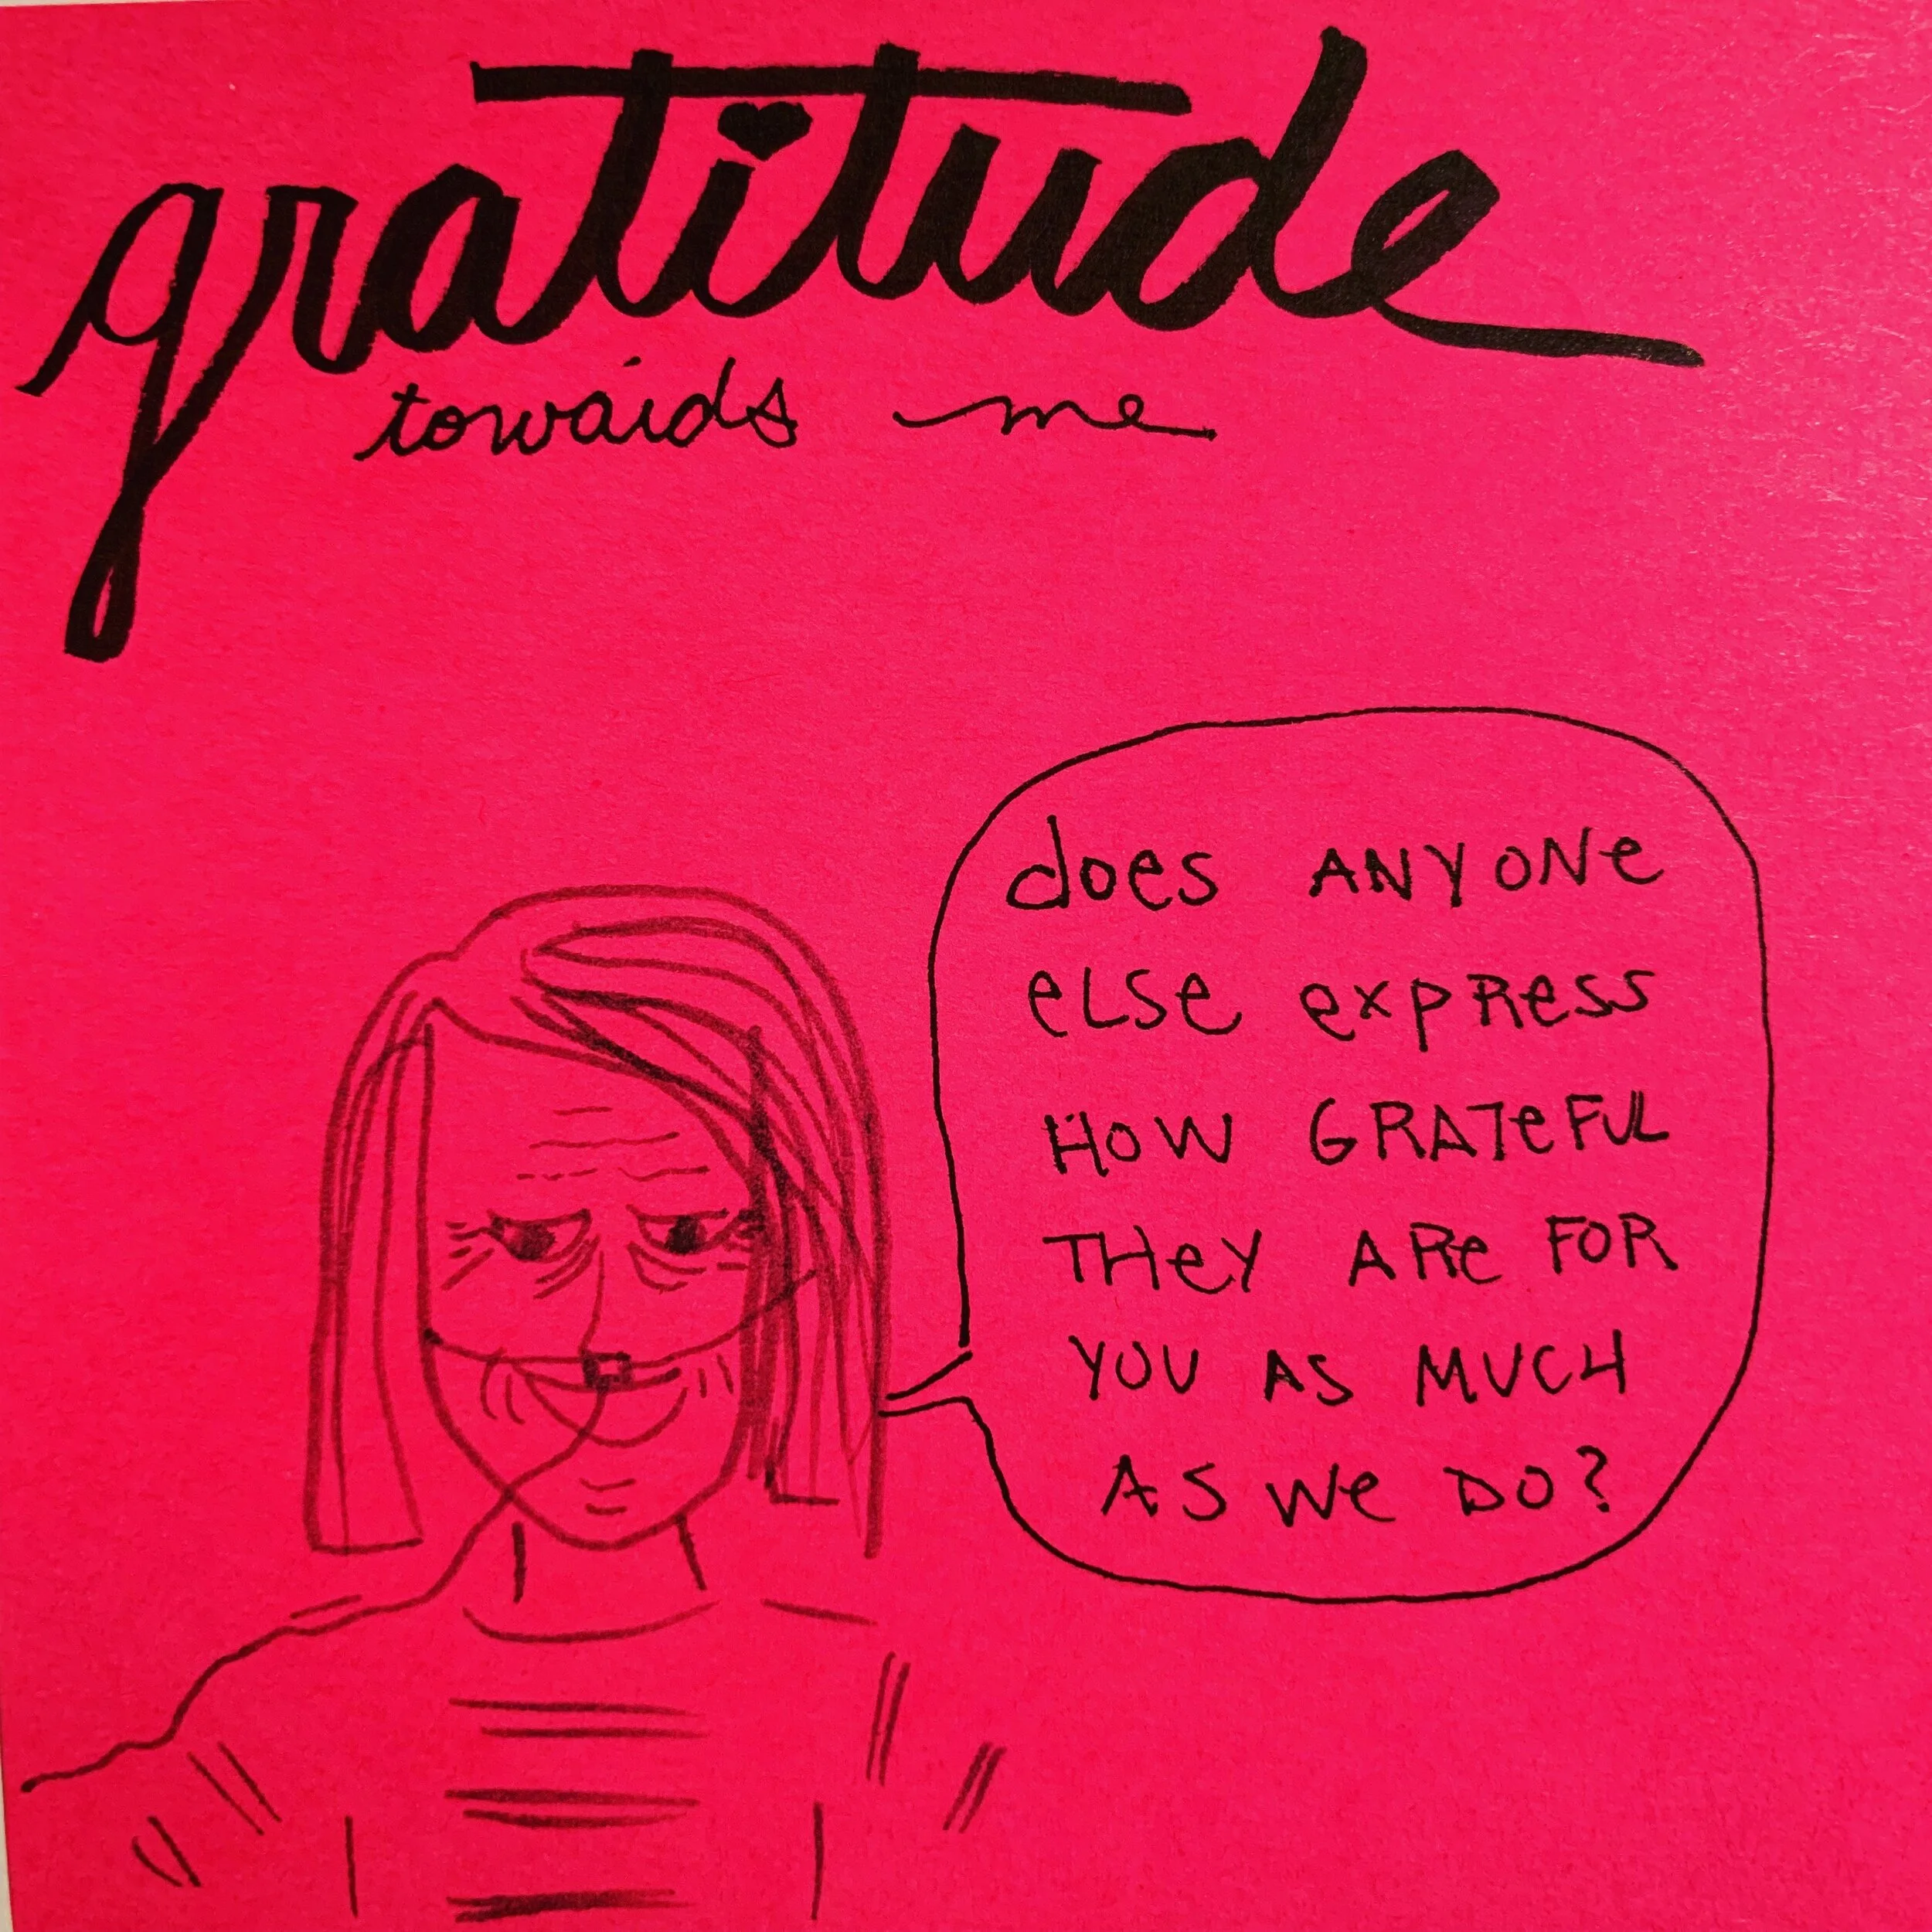 gratitude
towards me
does ANYONE
eLSe expRess
HOW GRATeFUL
THeY ARe FOR
YOU AS MUCH
AS We DO?